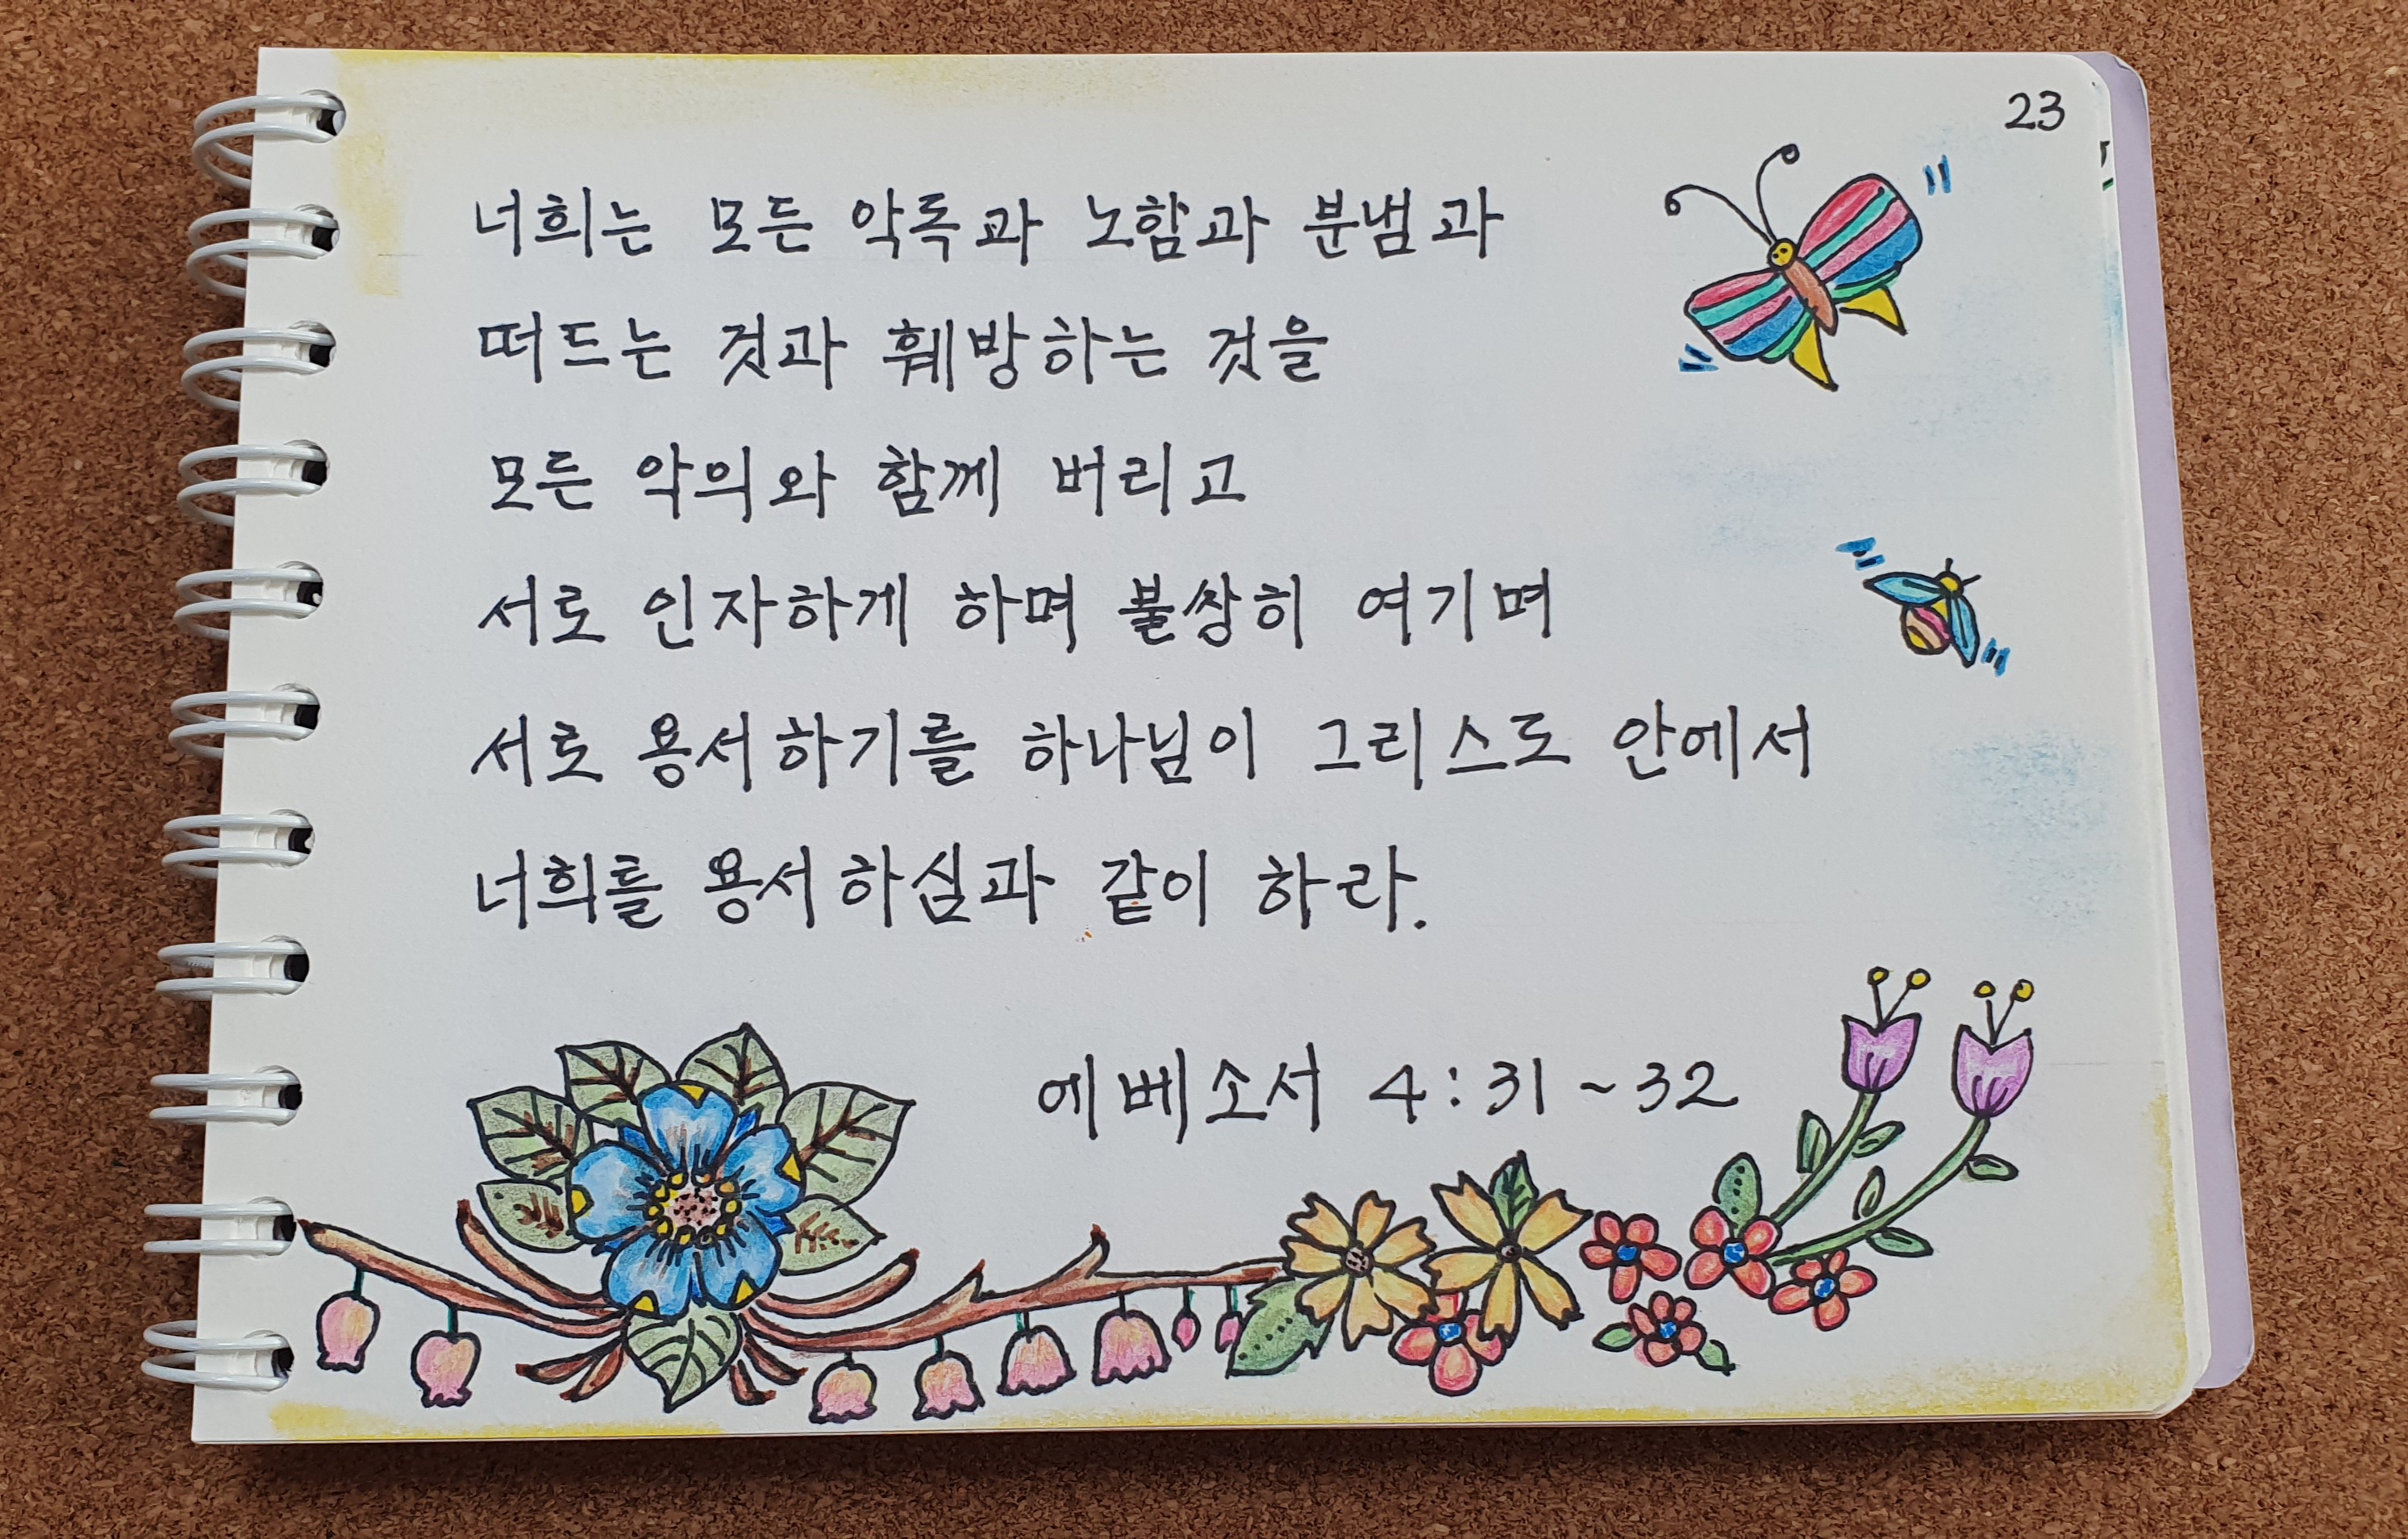 23
너희는 모든 악독과 노함과 분냄과
떠드는 것과 훼방하는 것을
모든 악의와 함께 버리고
서로 인자하게 하며 불쌍히 여기며
서로 용서하기를 하나님이 그리스도 안에서
너희를 용서하심과 같이 하라.
에베소서 4:31~32